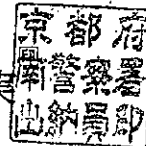 京都府
南警察署
出納員印